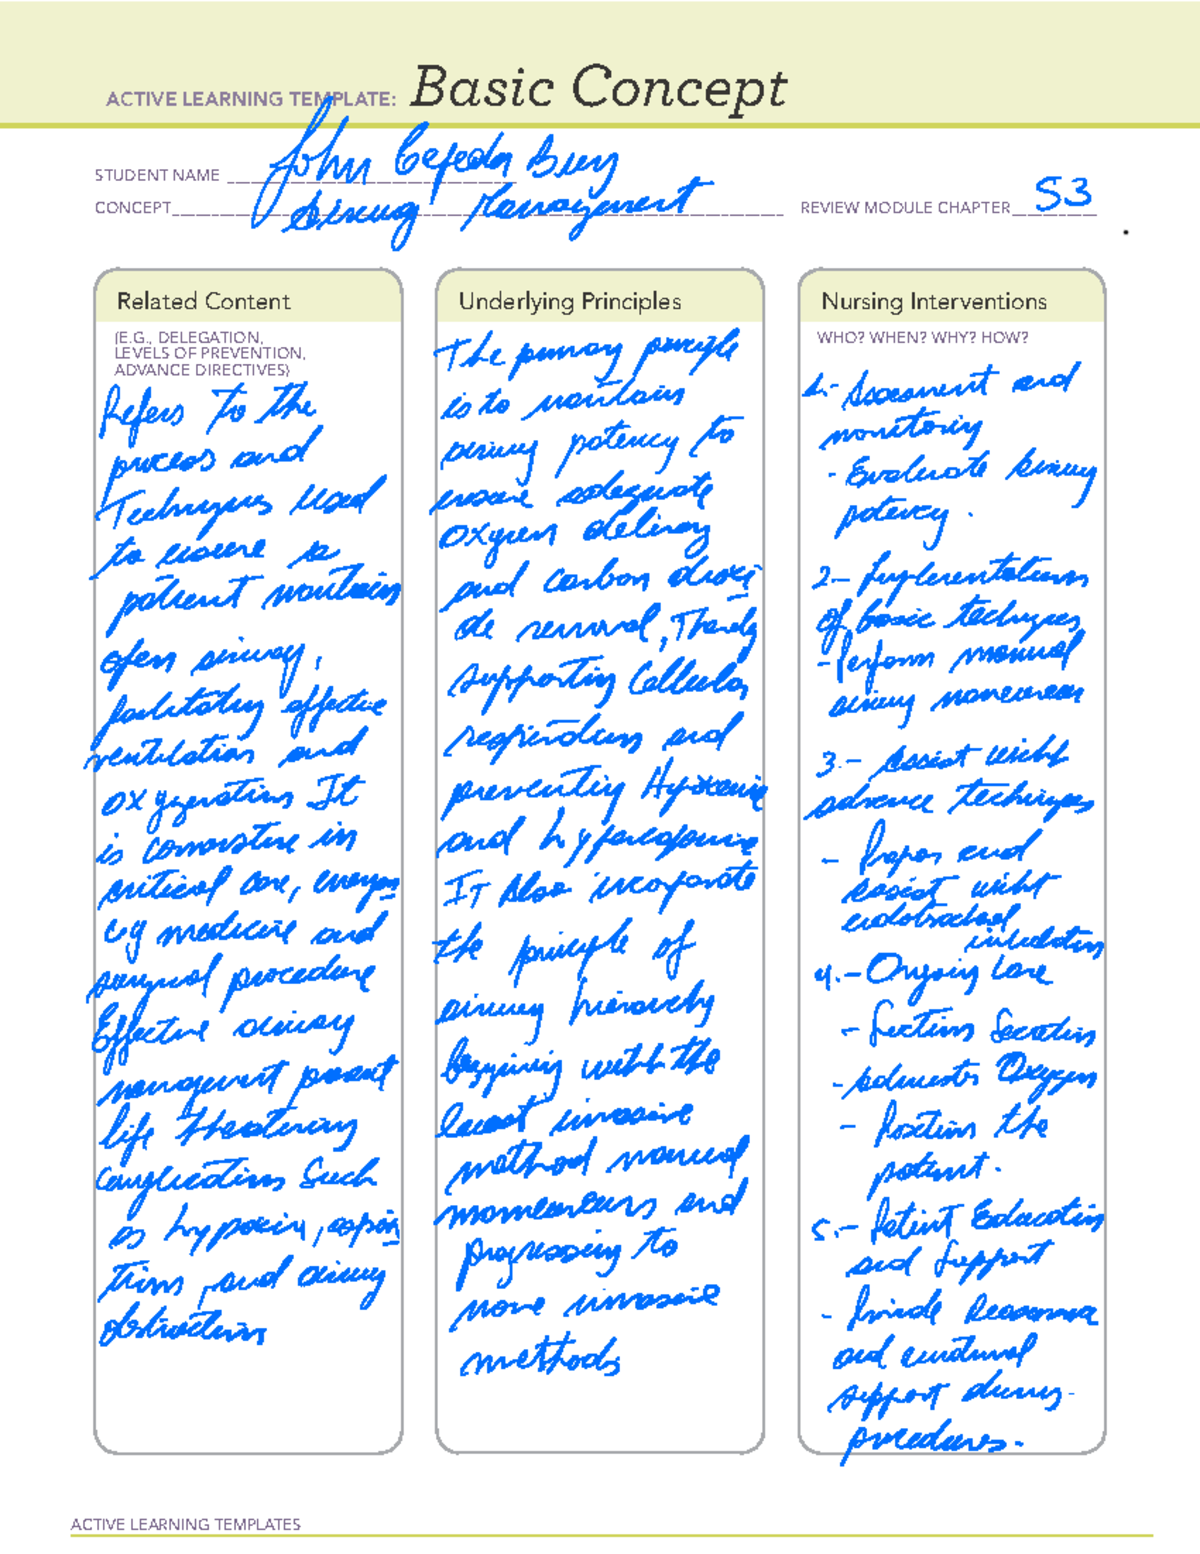 ACTIVE LEARNING TEMPLATE: Basic Concept
STUDENT NAME John Cepeda
CONCEPT Airway Management REVIEW MODULE CHAPTER 53
Related Content
(E.G., DELEGATION,
LEVELS OF PREVENTION,
ADVANCE DIRECTIVES)
Refers to the
process and
Techniques used
to ensure a
patient maintains
open airway,
facilitating effective
ventilation and
oxygenation It
is in
critical care, emergen
cy medicine and
surgical procedure
Effective airway
management prevent
life threatening
complications such
as hypoxia, aspira
tions, and airway
obstructions
Underlying Principles
The primary principle
is to maintain
airway patency to
ensure adequate
oxygen delivery
and carbon dioxi
de removal, Thereby
supporting Cellular
respiration and
preventing Hypoxemia
and hypercapnia
IT Also incorporate
the principle of
airway hierarchy
begining with the
least invasive
method manual
and
progressing to
more invasive
methods
Nursing Interventions
WHO? WHEN? WHY? HOW?
1.- Assessment and
monitoring
- Evaluate airway
patency.
2.- Implementations
of basic techniques
- Perform manual
airway maneuver
3.- assist with
advance techniques
- Prepar and
assist
endotracheal
intubation
4.- Ongoing Care
- Suction Secretion
- Oxygen
- Position the
patient.
5.- Patient Education
and Support
- Provide Reassurance
and
support during
procedures.
ACTIVE LEARNING TEMPLATES